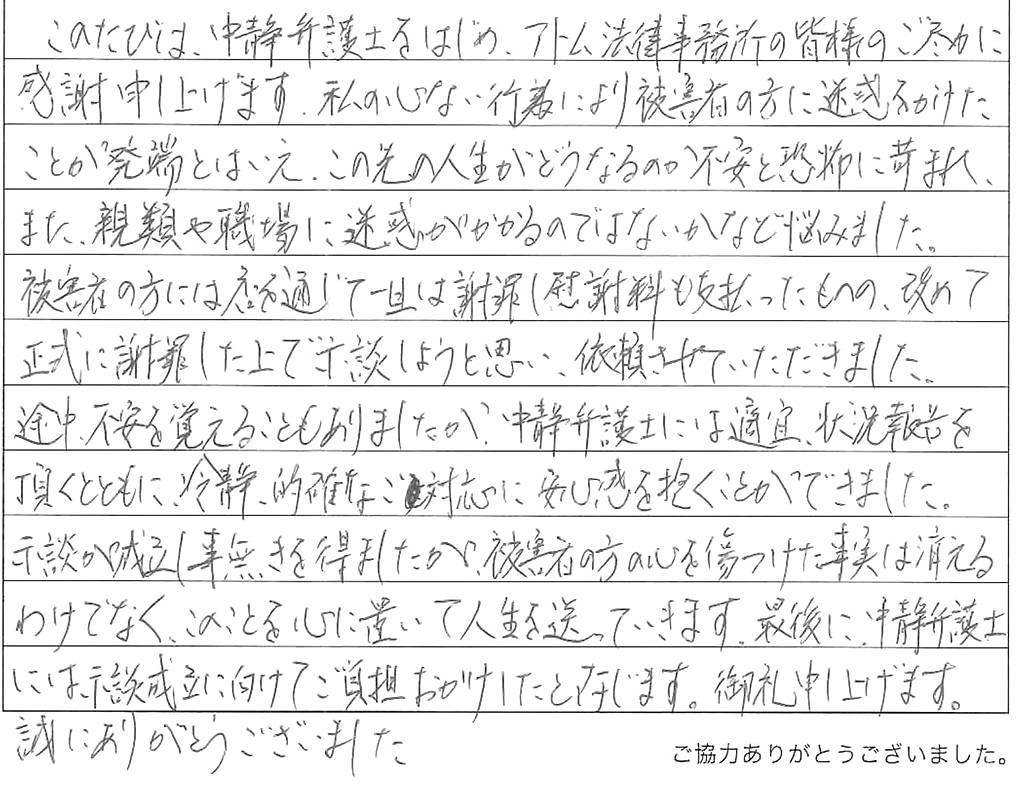 このたびは、中静弁護士をはじめ、アトム法律事務所の皆様のご尽力に
感謝申し上げます。私の心ない行為により被害者の方に迷惑をかけた
ことが発端とはいえ、この先の人生がどうなるのか不安と恐怖に苛まれ、
また、親類や職場に迷惑がかかるのではないかなど悩みました。
被害者の方には店を通じて一旦は謝罪し慰謝料も支払ったものの、改めて
正式に謝罪した上で示談しようと思い、依頼させていただきました。
途中、不安を覚えることもありましたが、中静弁護士には適宜、状況報告を
頂くとともに、冷静、的確なご対応に安心感を抱くことができました。
示談が成立し事無きを得ましたが、被害者の方の心を傷つけた事実は消える
わけでなく、このことを心に置いて人生を送っていきます。最後に、中静弁護士
には示談成立に向けてご負担おかけしたと存じます。御礼申し上げます。
誠にありがとうございました
ご協力ありがとうございました。